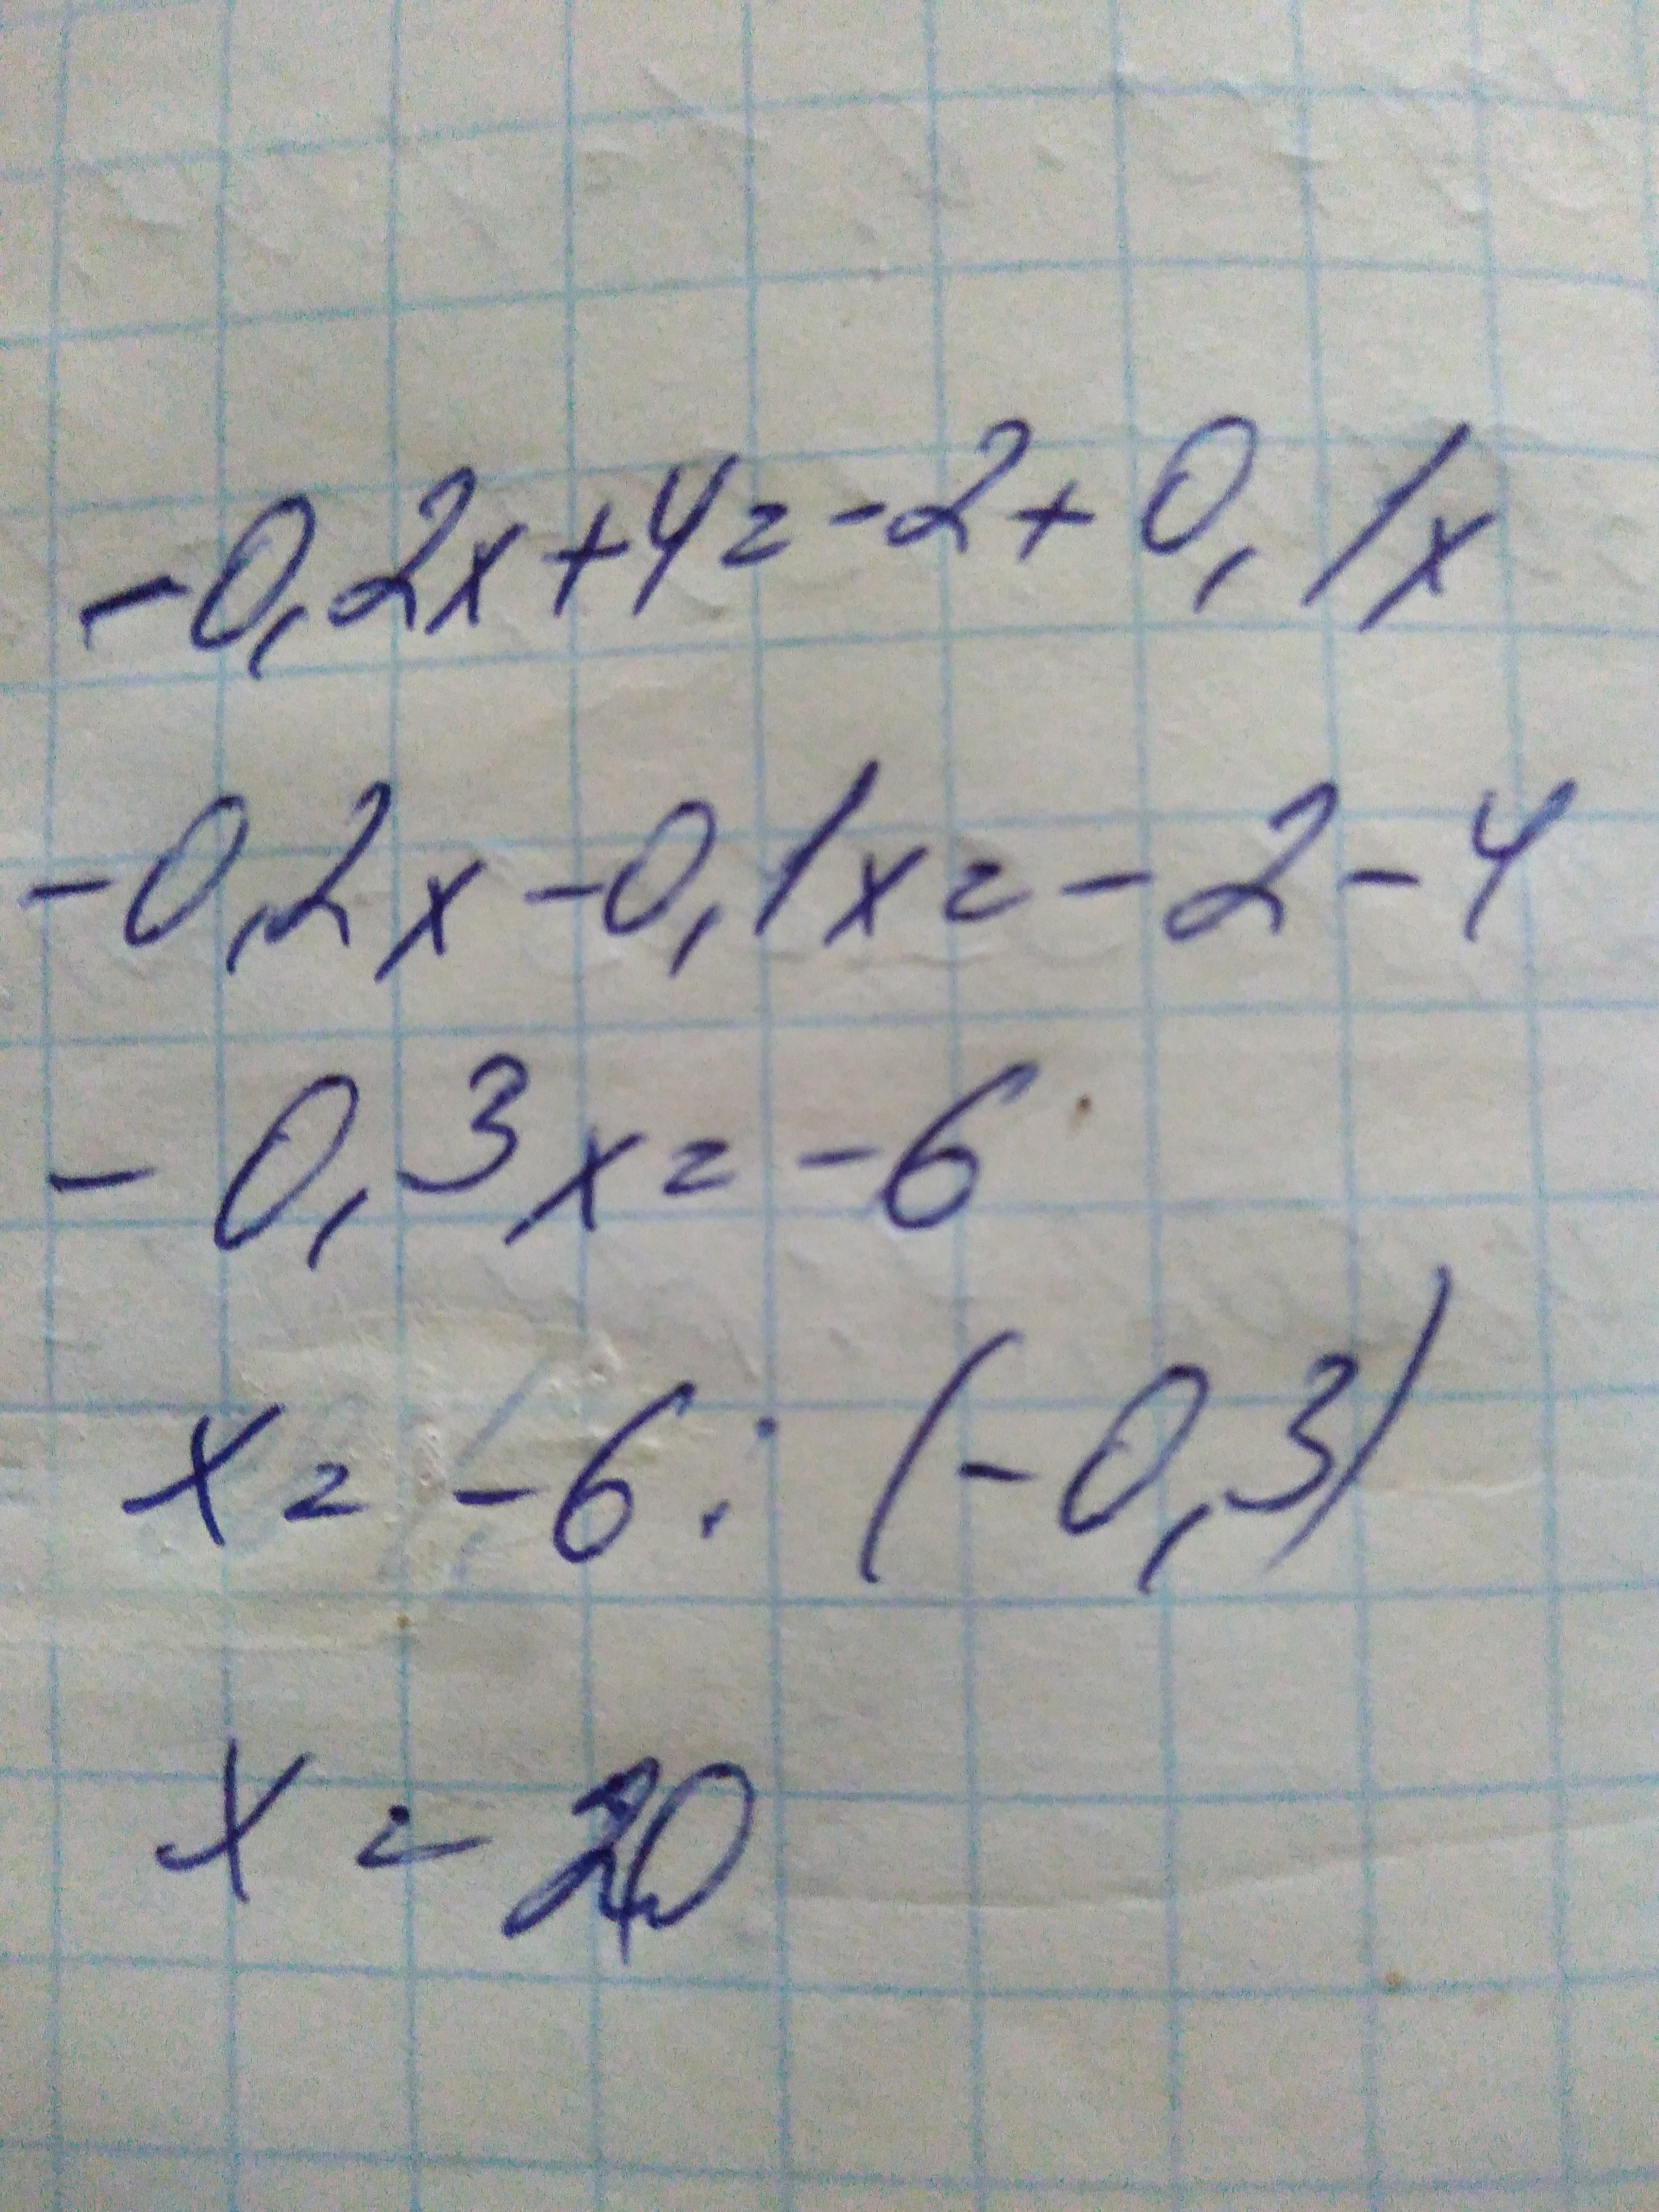 -0,2x+4=-2+0,1x
-0,2x-0,1x=-2-4
-0,3x=-6
x=-6:(-0,3)
x=20